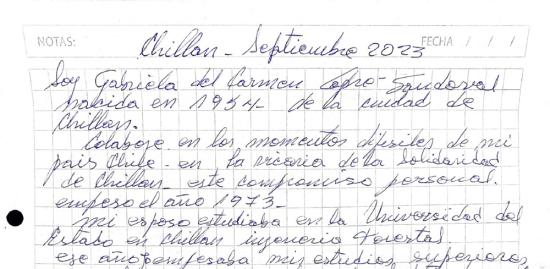 NOTAS: Chillan - Septiembre 2023 FECHA / / /
Soy Gabriela del Carmen Sandoval
nacida en 1954 - de la ciudad de
Chillan.
Colabore en los momentos dificiles de mi
pais Chile - en la vicaria de la Solidaridad
de Chillan - este compromiso personal.
empeso el año 1973 -
mi esposo estudiaba en la Universidad del
Estado en Chillan ingeneria Forestal
ese año empesaba mis estudios superiores